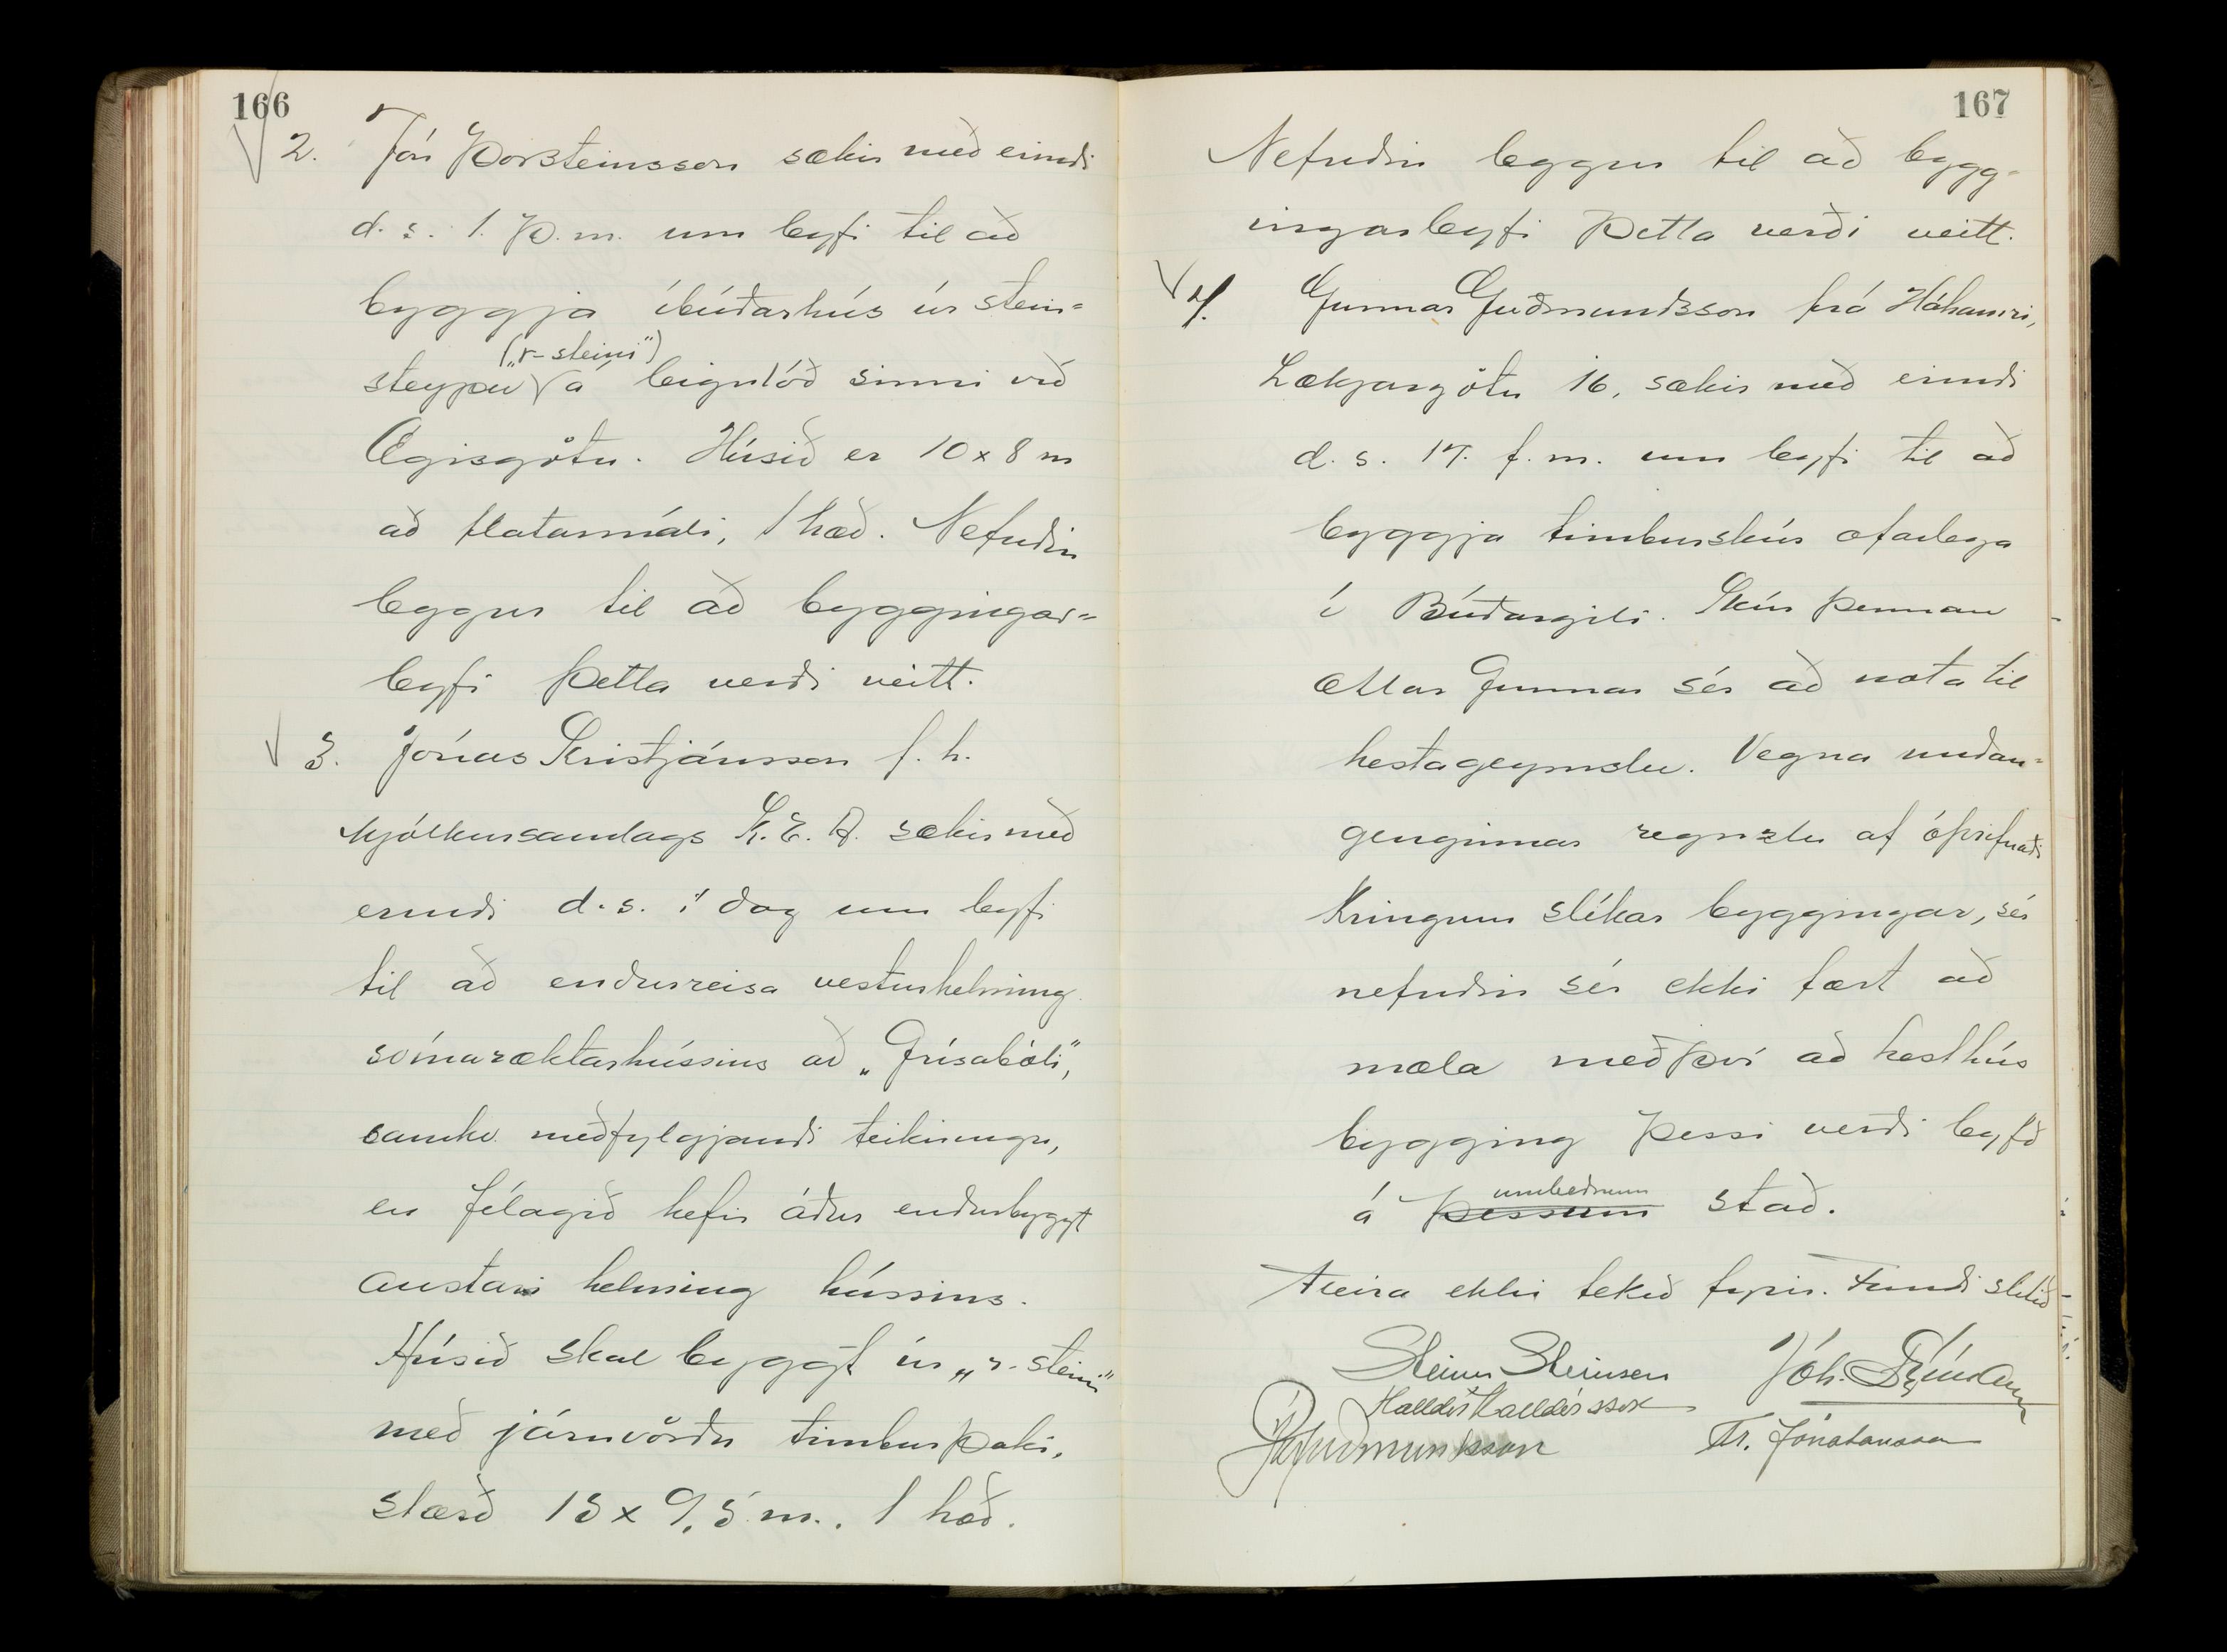 166
2. Jón Þorsteinsson sækir með erindi
d.s. 1. þ.m. um leyfi til að
byggja íbúðarhús úr stein-
("r-steini")
steypu á leigulóð sinni við
Ægisgötu. Húsið er 10 x 8 m
að flatarmáli, 1 hæð. Nefndin
leggur til að byggingar-
leyfi þetta verði veitt.
3. Jónas Kristjánsson f.h.
Mjólkursamlags K.E.A. sækir með
erindi d.s. í dag um leyfi
til að endurreisa vesturhelming
svínaræktarhússins að „Grísabóli",
samkv. meðfylgjandi teikningu,
en félagið hefir áður endurbyggt
austari helming hússins.
Húsið skal byggt úr „r-steini"
með járnvörðu timburþaki,
stærð 15 x 9,5 m., 1 hæð.
167
Nefndin leggur til að bygg-
ingarleyfi þetta verði veitt.
4. Gunnar Guðmundsson frá Háhamri,
Lækjargötu 16, sækir með erindi
d.s. 17. f.m. um leyfi til að
byggja timburskúr ofarlega
í Búðargili. Skúr þennan
ætlar Gunnar sér að nota til
hestageymslu. Vegna undan-
genginnar reynslu af óþrifnaði
kringum slíkar byggingar, sér
nefndin sér ekki fært að
mæla með því að hesthús
bygging þessi verði leyfð
umbeðnum
á þessum stað.
Fleira ekki tekið fyrir. Fundi slitið
Steinn Steinsen
Halldór Halldórsson
Guðmundsson
Tr. Jónatansson